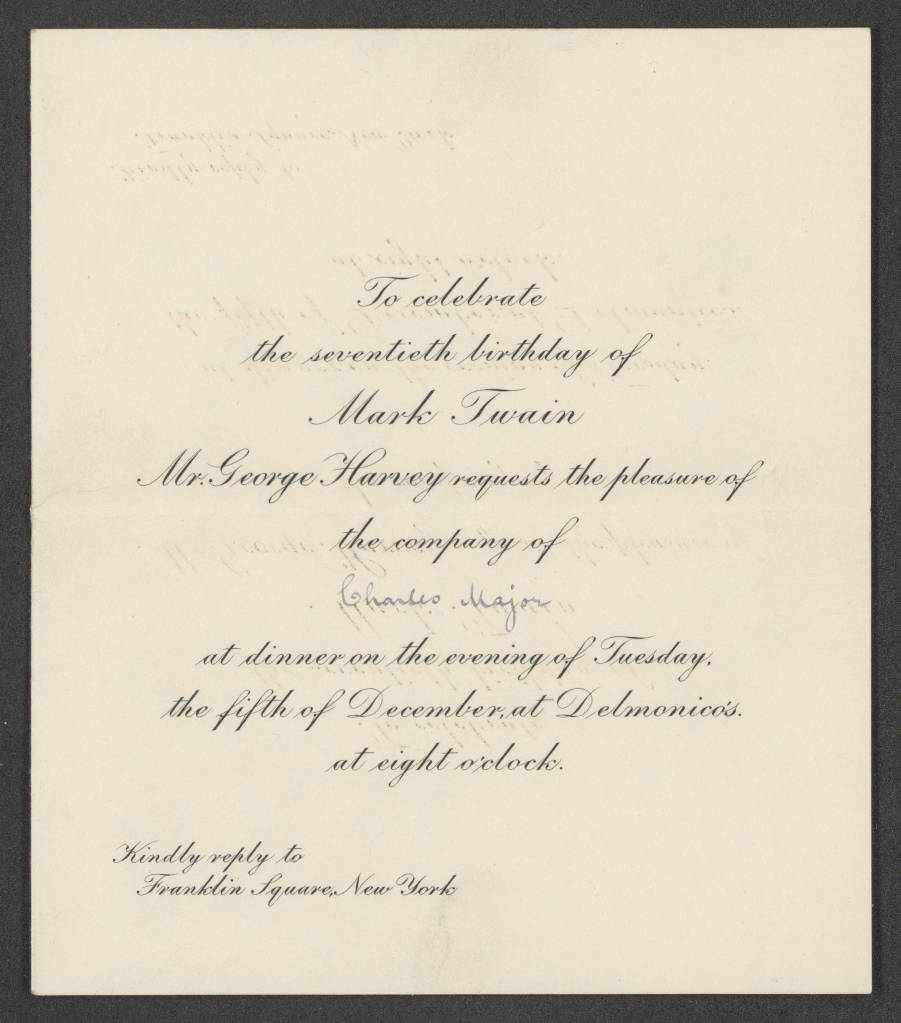 To celebrate
the seventieth birthday of
Mark Twain
Mr. George Harvey requests the pleasure of
the company of
Charles Major
at dinner on the evening of Tuesday,
the fifth of December, at Delmonico's.
at eight o'clock.
Kindly reply to
Franklin Square, New York